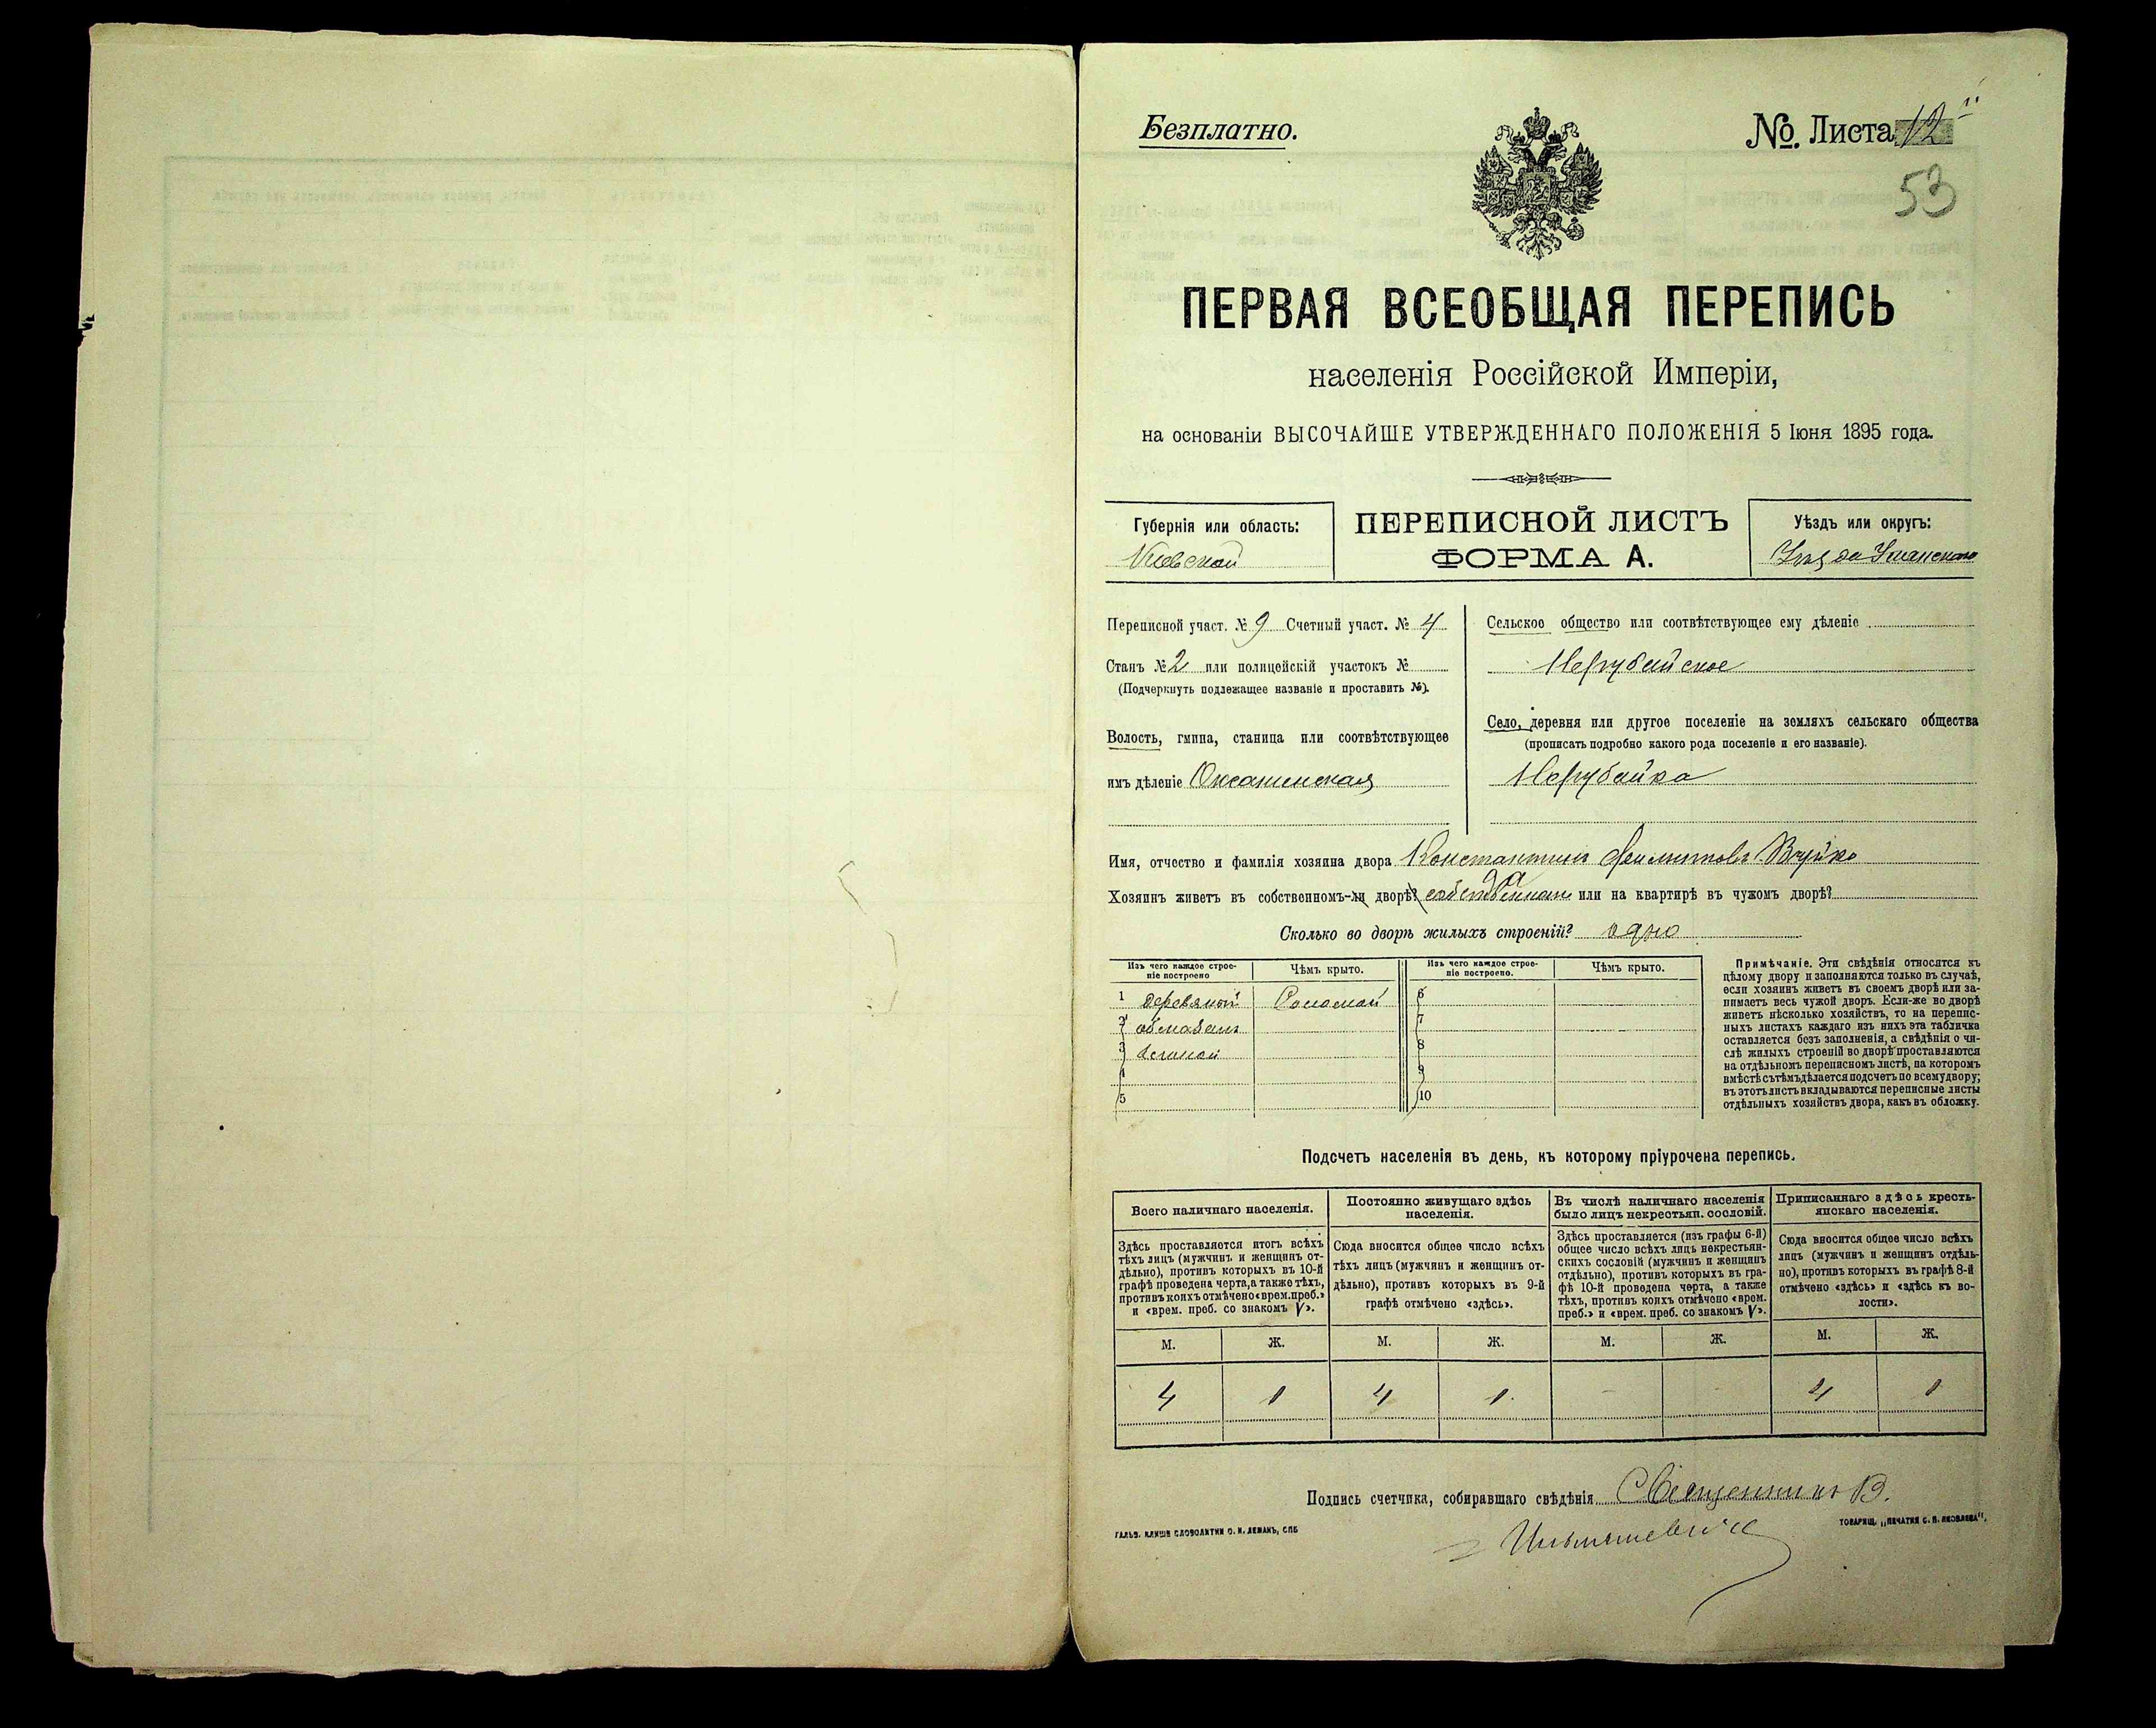 Безплатно.
№. Листа 12
53
ПЕРВАЯ ВСЕОБЩАЯ ПЕРЕПИСЬ
населенія Россійской Имперіи,
на основаніи ВЫСОЧАЙШЕ УТВЕРЖДЕННАГО ПОЛОЖЕНІЯ 5 Іюня 1895 года.
Губернія или область:
Кіевской
ПЕРЕПИСНОЙ ЛИСТЪ
ФОРМА А.
Уѣздъ или округъ:
Уѣзда Уманскаго
Переписной участ. № 9 Счетный участ. № 4
Станъ № 2 или полицейскій участокъ №
(Подчеркнуть подлежащее названіе и проставить №).
Волость, гмина, станица или соотвѣтствующее
имъ дѣленіе Оксанинская
Сельское общество или соотвѣтствующее ему дѣленіе
Нерубайское
Село, деревня или другое поселеніе на земляхъ сельскаго общества
(прописать подробно какого рода поселеніе и его названіе).
Нерубайка
Имя, отчество и фамилія хозяина двора Константинъ
Хозяинъ живетъ въ собственномъ-ли дворѣ? или на квартирѣ въ чужомъ дворѣ?
Сколько во дворѣ жилыхъ строеній? одно
Изъ чего каждое строе-
ніе построено
Чѣмъ крыто.
Изъ чего каждое строе-
ніе построено.
Чѣмъ крыто.
1 деревяной Соломой 6
2 обмазанъ 7
3 глиной 8
4 9
5 10
Примѣчаніе. Эти свѣдѣнія относятся къ
цѣлому двору и заполняются только въ случаѣ,
если хозяинъ живетъ въ своемъ дворѣ или за-
нимаетъ весь чужой дворъ. Если-же во дворѣ
живетъ нѣсколько хозяйствъ, то на перепис-
ныхъ листахъ каждаго изъ нихъ эта табличка
оставляется безъ заполненія, а свѣдѣнія о чи-
слѣ жилыхъ строеній во дворѣ проставляются
на отдѣльномъ переписномъ листѣ, на которомъ
вмѣстѣ съ тѣмъ дѣлается подсчетъ по всему двору;
въ этотъ листъ вкладываются переписные листы
отдѣльныхъ хозяйствъ двора, какъ въ обложку.
Подсчетъ населенія въ день, къ которому пріурочена перепись.
Всего наличнаго населенія.
Постоянно живущаго здѣсь
населенія.
Въ числѣ наличнаго населенія
было лицъ некрестьян. сословій.
Приписаннаго здѣсь кресть-
янскаго населенія.
Здѣсь проставляется итогъ всѣхъ
тѣхъ лицъ (мужчинъ и женщинъ от-
дѣльно), противъ которыхъ въ 10-й
графѣ проведена черта, а также тѣхъ,
противъ коихъ отмѣчено «врем. преб.»
и «врем. преб. со знакомъ V».
Сюда вносится общее число всѣхъ
тѣхъ лицъ (мужчинъ и женщинъ от-
дѣльно), противъ которыхъ въ 9-й
графѣ отмѣчено «здѣсь».
Здѣсь проставляется (изъ графы 6-й)
общее число всѣхъ лицъ некрестьян-
скихъ сословій (мужчинъ и женщинъ
отдѣльно), противъ которыхъ въ гра-
фѣ 10-й проведена черта, а также
тѣхъ, противъ коихъ отмѣчено «врем.
преб.» и «врем. преб. со знакомъ V».
Сюда вносится общее число всѣхъ
лицъ (мужчинъ и женщинъ отдѣль-
но), противъ которыхъ въ графѣ 8-й
отмѣчено «здѣсь» и «здѣсь къ во-
лости».
М. Ж. М. Ж. М. Ж. М. Ж.
4 1 4 1 - - 4 1
Подпись счетчика, собиравшаго свѣдѣнія Священникъ В.
ГАЛЬВ. КЛИШЕ СЛОВОЛИТНИ О. И. ЛЕМАНЪ, СПБ
ТОВАРИЩ. „ПЕЧАТНЯ С. П. ЯКОВЛЕВА“.